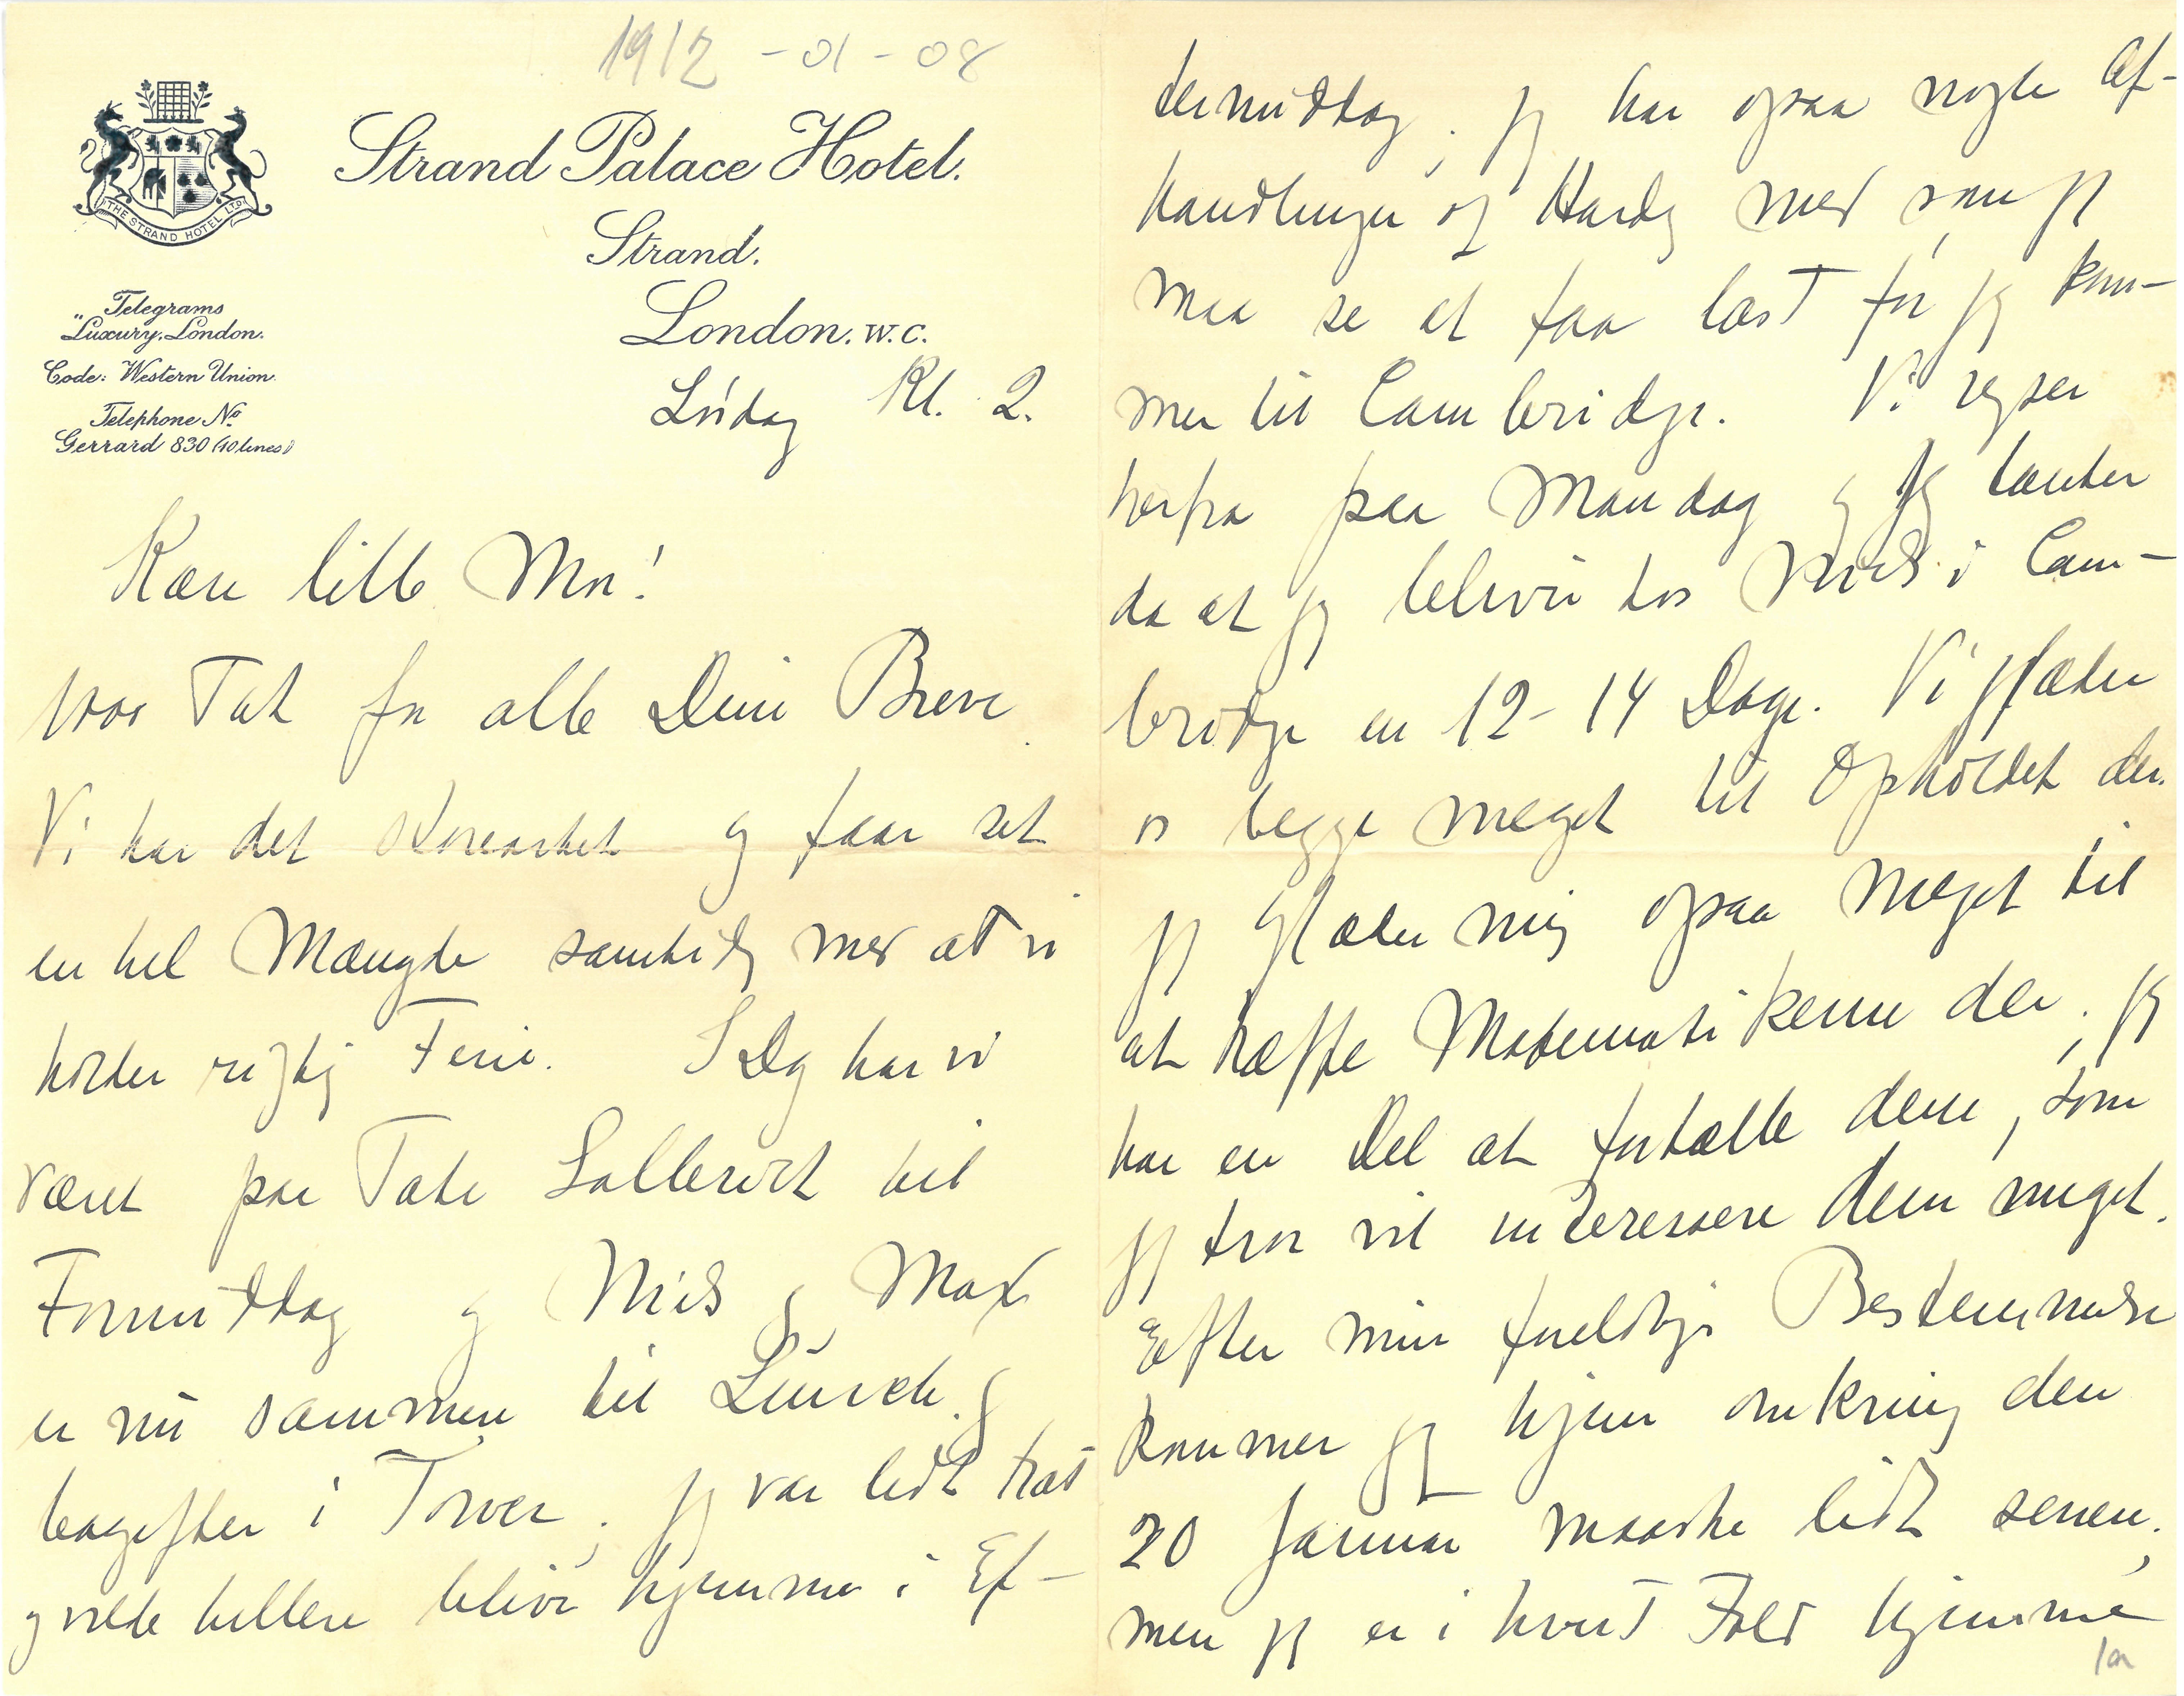 1912-01-08
THE STRAND HOTEL LTD
Strand Palace Hotel.
Strand.
London. W.C.
Telegrams
"Luxury, London.
Code: Western Union.
Telephone No.
Gerrard 830 (10 lines)
Lørdag Kl. 2.
Kære lille Mor!
1000 Tak for alle Dine Breve.
Vi har det storartet og faar set
en hel Mængde samtidig med at vi
holder rigtig Ferie. I Dag har vi
været paa Tate Gallerict til
Formiddag og Niels og Max
er nu sammen til Lunch og
bagefter i Tower; jeg var lidt træt
og vilde hellere blive hjemme i Ef-
termiddag; jeg har ogsaa nogle Af-
handlinger af Hardy med som jeg
maa se at faa læst før jeg kom-
mer til Cambridge. Vi rejser
herfra paa Mandag og jeg tænker
da at jeg bliver hos Niels i Cam-
bridge en 12-14 Dage. Vi glæder
os begge meget til Opholdet der.
jeg glæder mig ogsaa meget til
at træffe Matematikerne der; jeg
har en Del at fortælle dem, som
jeg tror vil interessere dem meget.
Efter min foreløbige Bestemmelse
kommer jeg hjem omkring den
20 Januar maaske lidt senere;
men jeg er i hvert Fald hjemme
1a